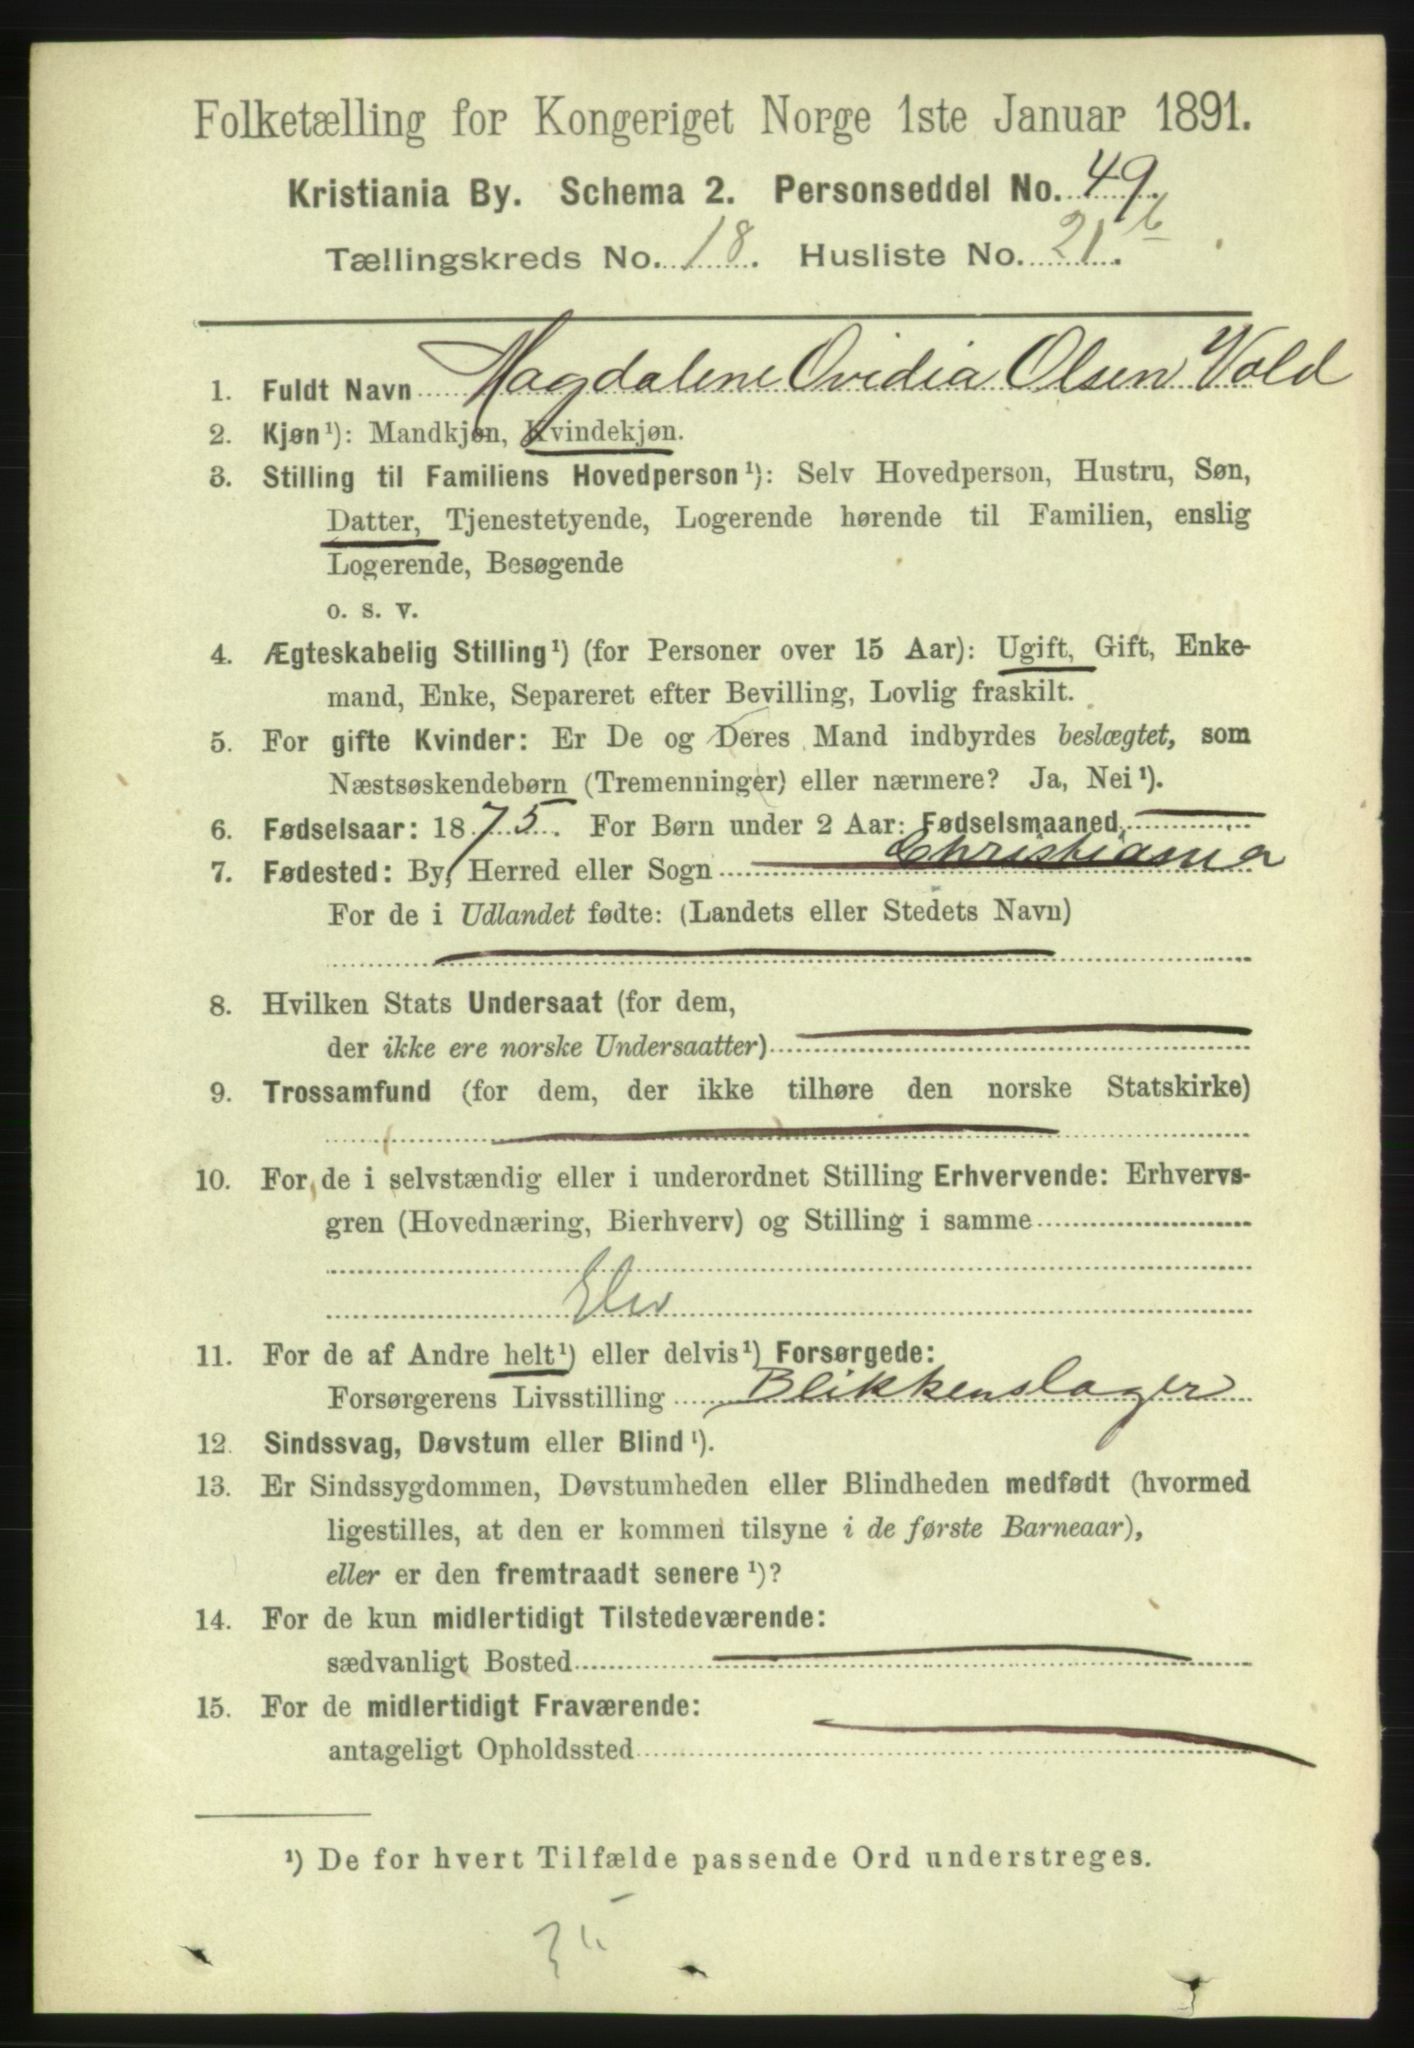 Folketælling for Kongeriget Norge 1ste Januar 1891.
Kristiania By. Schema 2. Personseddel No. 49.
Tællingskreds No. 18. Husliste No. 21 b.
1. Fuldt Navn Magdalene Ovidia Olsen Vold
2. Kjøn¹): Mandkjøn, Kvindekjøn.
3. Stilling til Familiens Hovedperson¹): Selv Hovedperson, Hustru, Søn,
Datter, Tjenestetyende, Logerende hørende til Familien, enslig
Logerende, Besøgende
o. s. v.
4. Ægteskabelig Stilling¹) (for Personer over 15 Aar): Ugift, Gift, Enke-
mand, Enke, Separeret efter Bevilling, Lovlig fraskilt.
5. For gifte Kvinder: Er De og Deres Mand indbyrdes beslægtet, som
Næstsøskendebørn (Tremenninger) eller nærmere? Ja, Nei¹).
6. Fødselsaar: 1875. For Børn under 2 Aar: Fødselsmaaned
7. Fødested: By, Herred eller Sogn Christiania
For de i Udlandet fødte: (Landets eller Stedets Navn)
8. Hvilken Stats Undersaat (for dem,
der ikke ere norske Undersaatter)
9. Trossamfund (for dem, der ikke tilhøre den norske Statskirke)
10. For de i selvstændig eller i underordnet Stilling Erhvervende: Erhvervs-
gren (Hovednæring, Bierhverv) og Stilling i samme
Elev
11. For de af Andre helt¹) eller delvis¹) Forsørgede:
Forsørgerens Livsstilling Blikkenslager
12. Sindssvag, Døvstum eller Blind¹).
13. Er Sindssygdommen, Døvstumheden eller Blindheden medfødt (hvormed
ligestilles, at den er kommen tilsyne i de første Barneaar),
eller er den fremtraadt senere¹)?
14. For de kun midlertidigt Tilstedeværende:
sædvanligt Bosted
15. For de midlertidigt Fraværende:
antageligt Opholdssted
¹) De for hvert Tilfælde passende Ord understreges.